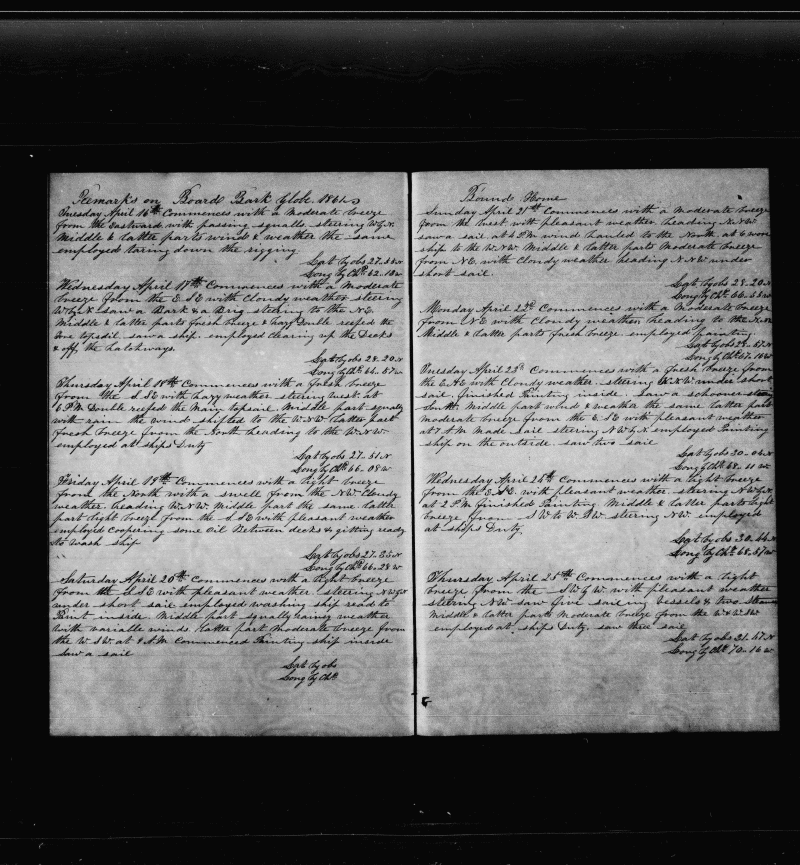 Remarks on Board Bark Globe 1861
Tuesday April 16th Commences with a Moderate breeze
from the Eastward with passing squalls steering W by N
Middle & latter parts wind & weather the same
employed taring down the rigging
Lat by obs 27.54 N
Long by Chr 62.18 W
Wednesday April 17th Commences with a Moderate
breeze from the E S E with Cloudy weather steering
W by N saw a Bark & a Brig steering to the N E
Middle & latter parts fresh breeze & hazy Double reefed the
fore topsail saw a ship employed clearing up the Decks
& off the hatchways.
Lat by obs 28.20 N
Long by Chr 64.57 W
Thursday April 18th Commences with a fresh breeze
from the S S E with hazy weather steering West at
6 P M Double reefed the Main topsail Middle part squally
with rain the wind shifted to the W N W latter part
fresh breeze from the North heading to the W N W
employed at ships Duty
Lat by obs 27-51 N
Long by Chr 66.08 W
Friday April 19th Commences with a light breeze
from the North with a swell from the N W Cloudy
weather heading W N W Middle part the same latter
part light breeze from the S S E with pleasant weather
employed Coopering some Oil Between decks & gitting ready
to wash ship
Lat by obs 27-35 N
Long by Chr 66.28 W
Saturday April 20th Commences with a light breeze
from the S S E with pleasant weather steering N W by N
under short sail employed washing ship read to
Paint inside Middle part squally rainey weather
with variable winds latter part Moderate breeze from
the W S W at 8 A M Commenced Painting ship inside
Saw a sail
Lat by obs
Long by Chr
Bound Home
Sunday April 21st Commences with a moderate breeze
from the West with pleasant weather heading N N W
saw a sail at 4 P M wind hauled to the North at 6 wore
ship to the W N W Middle & latter parts Moderate breeze
from N E with Cloudy weather heading N N W under
short sail
Lat by obs 28.20 N
Long by Chr 66-58 W
Monday April 22d Commences with a Moderate breeze
from N E with Cloudy weather heading to the N N W
Middle & latter parts fresh breeze employed painting
Lat by obs 28.57 N
Long by Chr 67.16 W
Tuesday April 23d Commences with a fresh breeze from
the E N E with Cloudy weather steering N W by W under short
sail finished Painting inside saw a schooner steering
South Middle part wind & weathe the same latter part
moderate breeze from the E S E with pleasant weather
at 7 A M Made sail steering N W by N employed Painting
ship on the outside saw two sail
Lat by obs 30-04 N
Long by Chr 68-11 W
Wednesday April 24th Commences with a light breeze
from the E S E with pleasant weather steering N W by N
at 2 P M finished Painting Middle & latter parts light
breeze from S W to W S W steering N W employed
at ships Duty
Lat by obs 30.44 N
Long by Chr 68.57 W
Thursday April 25th Commences with a light
breeze from the S W by W with pleasant weather
steering N W saw five sailing vessels & two Steamers
Middle & latter parts Moderate breeze from the W & W S W
employed at ships Duty saw three sail
Lat by obs 31.57 N
Long by Chr 70-16 W